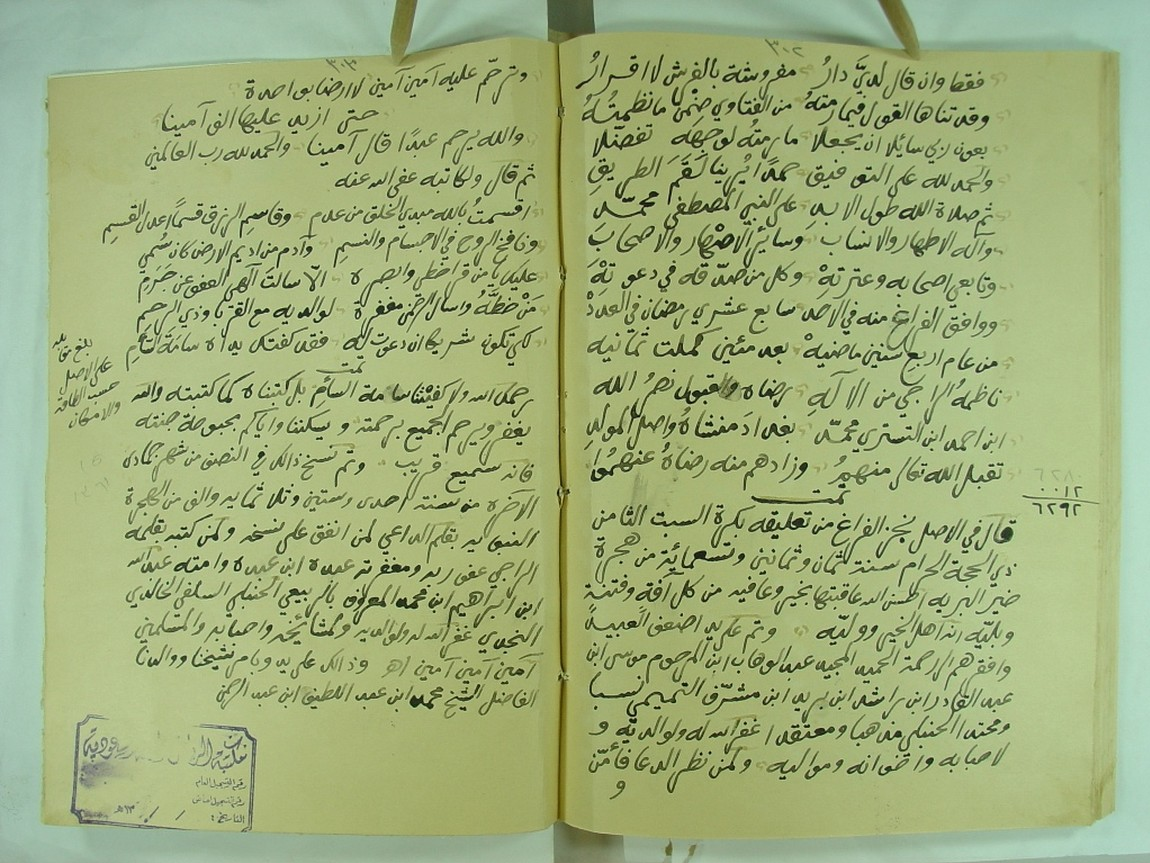 ٣٠٢
فقط وان قال لديَّ دارُ مفروشة بالفرش لا اقرارُ
وقد تناها القول فيما رمتهُ من الفتاوي ضمن ما نظمتُهُ
بعون ربي سائلا ان يجعلا ما رمتُه لوجهه تفضّلا
والحمد لله على التوفيق حمدًا يُرينا لَقَمَ الطريقِ
ثم صلاة الله طول الابد على النبي المصطفى محمّد
وآله الاطهار والانساب وسائر الاصهار والاصحابِ
وتابعي اصحابه وعترتهْ وكل من صدّقه في دعوتهْ
ووافق الفراغ منه في الاحد سابع عشري رمضان في العدَدْ
من عام اربع سنين ماضيهْ بعد مئين كملت ثمانيه
ناظمهُ الراجي من الالهِ رضاه والقبول نصرُ الله
ابن احمد ابن التستري محمّد بغداد منشاهُ واصل المولدِ
تقبل الله تعالى منهمُ وزادهم منه رضاهُ عنهمُوا
تمت
٦٢٩٢
قال في الاصل نجز الفراغ من تعليقه بكرة السبت الثامن من
ذي الحجة الحرام سنة ثمان وثمانين وتسعمائة من هجرة
خير البريه احسن الله عاقبتها بخير وعافيه من كل آفة وفتنة
وبليّه انه اهل الخير ووليّه وتم على يد اضعف العبيد
وافقرهم الى رحمة الحميد المجيد عبد الوهاب ابن المرحوم موسى ابن
عبد القادر ابن راشد ابن بريد ابن مشرّف التميمي نسبا
ومحتدا الحنبلي مذهبا ومعتقدا غفر الله له ولوالديه و
لاصحابه واخوانه ومواليه ولمن نظر الدعا فأمّن
و
٣٠٣
وترحّم عليه آمين آمين لا ارضا بواحدة
حتى ازيد عليها الف آمينا
والله يرحم عبدًا قال آمينا والحمد لله رب العالمين
ثم قال ولكاتبه عفى الله عنه
اقسمتُ بالله مبدي الخلق من عدم وقاسم الرزق قسمًا اعدل القسمِ
ونافخ الروح في الاجسام والنسمِ وآدم من اديم الارض كان سُمي
عليك يا من قرا خطي وابصره الّا سالت الهي العفو عن جرمِ
مَنْ خطَّهُ واسال الرحمن مغفرة لوالديه مع القربا وذي الرحمِ
لكي تكون شريكا ان دعوت له فقد كفتك يداه سامة السَأَمِ
تمت
يرحمك الله ولا كفيْتنا سامة السأمِ بل كتبناه كما كتبته والله
يغفر ويرحم الجميع برحمته ويسكننا واياكم بحبوحة جنته
فانه سميع قريب وتم نسخ ذالك في النصف من شهر جمادى
الآخرة من سنة احدى وستين وثلاثمايه والف من الهجرة
النبويه بقلم الداعي لمن انفق على نسخه ولمن كتبه بقلمه
الراجي عفو ربه ومغفرته عبده ابن عبده وامته عبد الله
ابن ابراهيم ابن محمد المعروف بالربيعي الحنبلي السلفي الخالدي
النجدي غفر الله له ولوالديه ولمشائخه واصحابه والمسلمين
آمين آمين آمين اهـ وذالك على يد وبامر شيخنا ووالدنا
الفاضل الشيخ محمد ابن عبد اللطيف ابن عبد الرحمن
بلغ مقابله
على الاصل
حسب الطاقة
والامكان
مكتبة الرياض السعودية
رقم التسجيل العام
رقم التسجيل الخاص
التاريخ: / / ١٣هـ